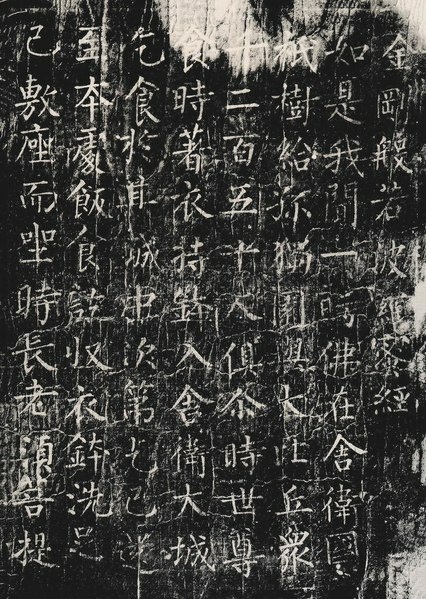 金剛般若波羅蜜經
如是我聞一時佛在舍偉國
祇樹給孤獨園與大比丘衆
千二百五十人俱尒時世尊
食時著衣持鉢入舍衛大城
乞食於其城中次第乞已還
至本處飯食訖収衣鉢洗足
已敷座而坐時長老須菩提